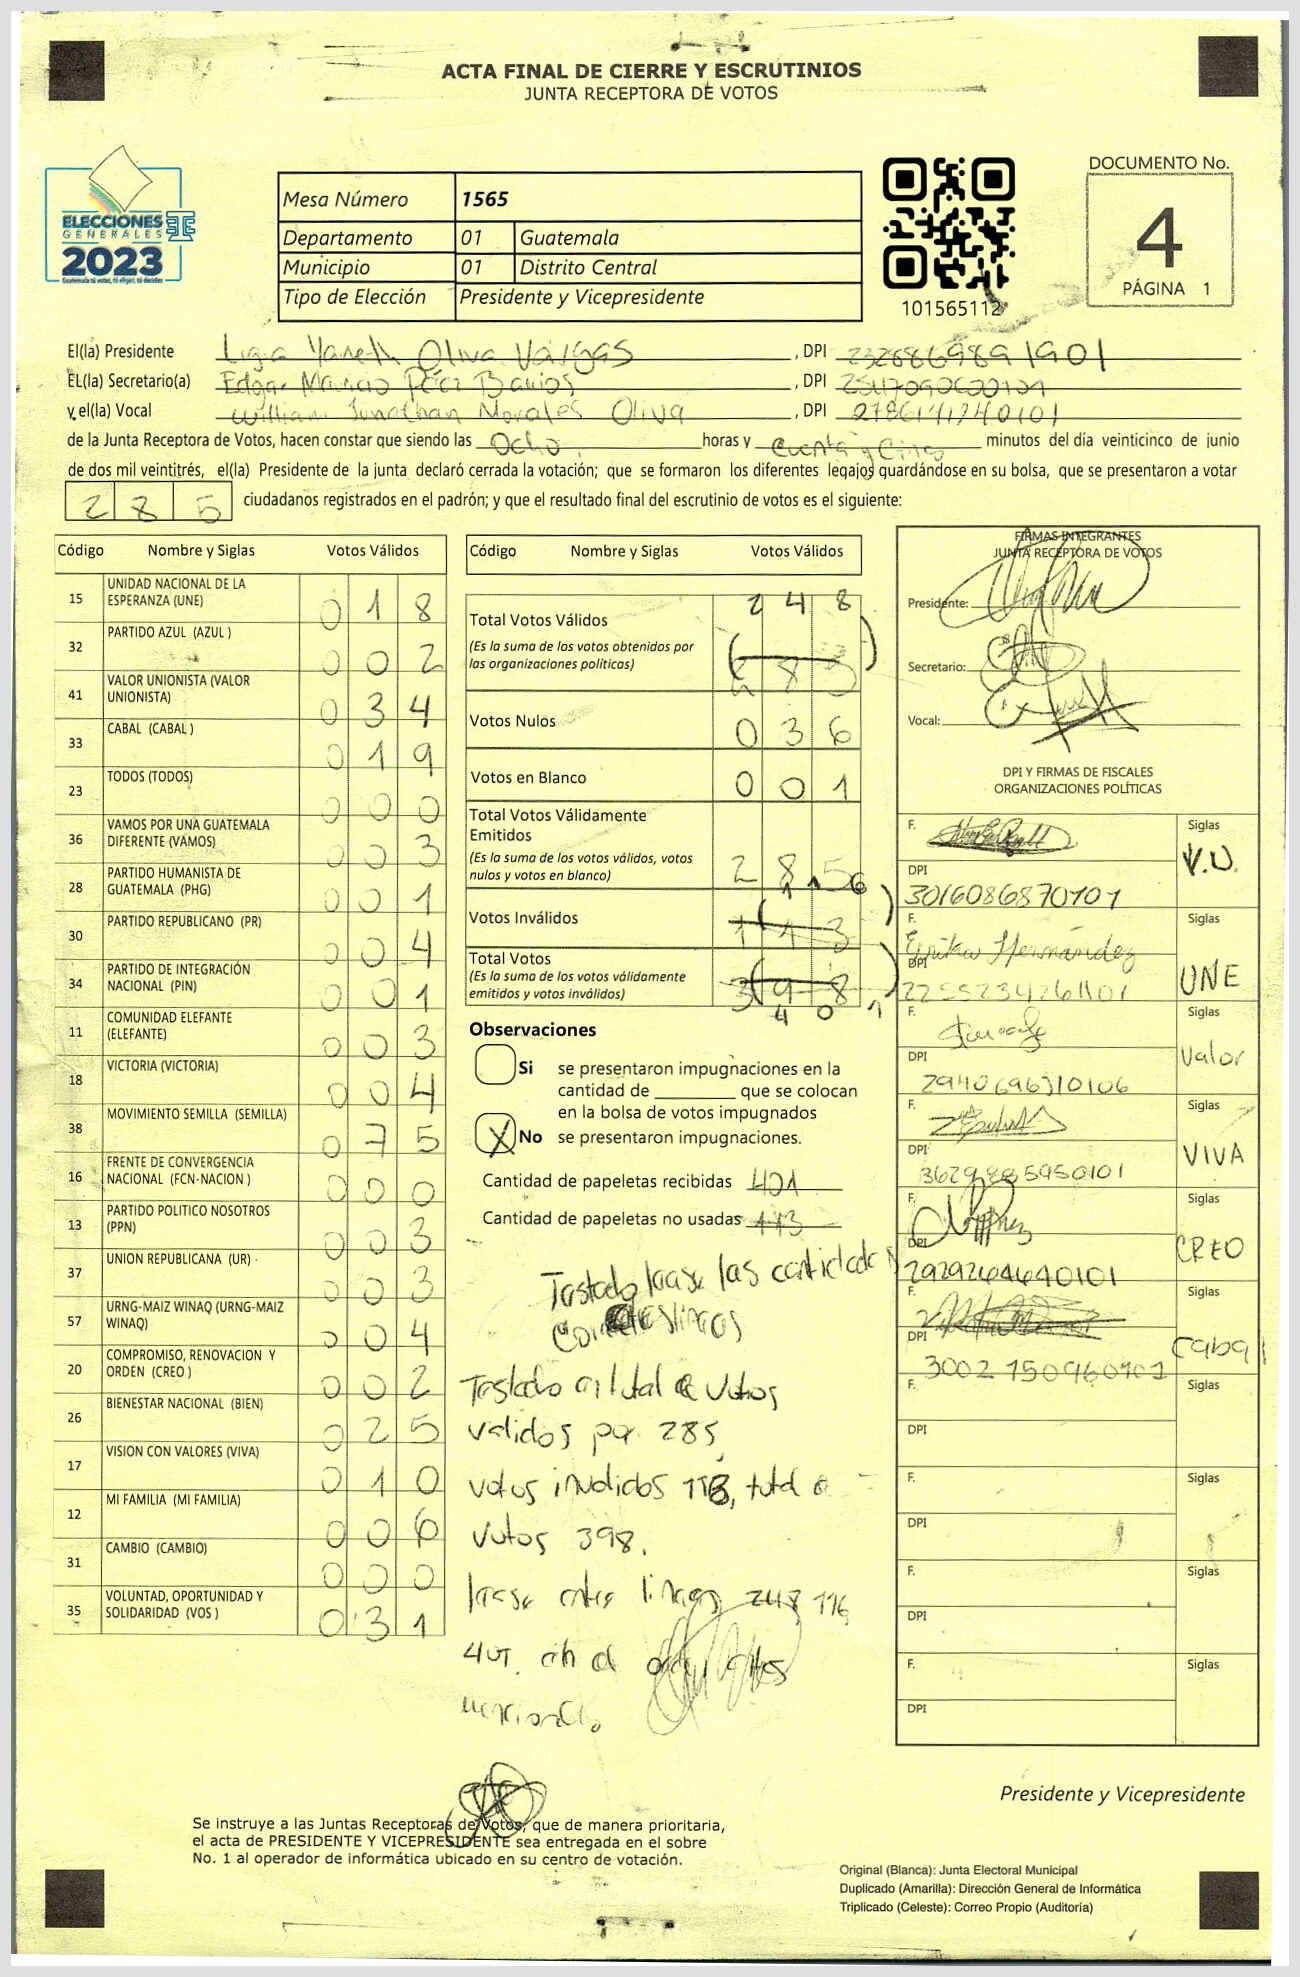 ACTA FINAL DE CIERRE Y ESCRUTINIOS
JUNTA RECEPTORA DE VOTOS
ELECCIONES
GENERALES
2023
Guatemala tú votas, tú eliges, tú decides
Mesa Número 1565
Departamento 01 Guatemala
Municipio 01 Distrito Central
Tipo de Elección Presidente y Vicepresidente
101565112
DOCUMENTO No.
4
PÁGINA 1
El(la) Presidente Ligia Yaneth Oliva Vargas , DPI 2328869891901
EL(la) Secretario(a) Edgar Mauricio Pérez Barrios , DPI
y el(la) Vocal William Jonathan Morales Oliva , DPI
de la Junta Receptora de Votos, hacen constar que siendo las Ocho horas y minutos del día veinticinco de junio
de dos mil veintitrés, el(la) Presidente de la junta declaró cerrada la votación; que se formaron los diferentes legajos guardándose en su bolsa, que se presentaron a votar
2 8 5 ciudadanos registrados en el padrón; y que el resultado final del escrutinio de votos es el siguiente:
Código Nombre y Siglas Votos Válidos
15 UNIDAD NACIONAL DE LA ESPERANZA (UNE) 0 1 8
32 PARTIDO AZUL (AZUL ) 0 0 2
41 VALOR UNIONISTA (VALOR UNIONISTA) 0 3 4
33 CABAL (CABAL ) 0 1 9
23 TODOS (TODOS) 0 0 0
36 VAMOS POR UNA GUATEMALA DIFERENTE (VAMOS) 0 0 3
28 PARTIDO HUMANISTA DE GUATEMALA (PHG) 0 0 1
30 PARTIDO REPUBLICANO (PR) 0 0 4
34 PARTIDO DE INTEGRACIÓN NACIONAL (PIN) 0 0 1
11 COMUNIDAD ELEFANTE (ELEFANTE) 0 0 3
18 VICTORIA (VICTORIA) 0 0 4
38 MOVIMIENTO SEMILLA (SEMILLA) 0 7 5
16 FRENTE DE CONVERGENCIA NACIONAL (FCN-NACION ) 0 0 0
13 PARTIDO POLITICO NOSOTROS (PPN) 0 0 3
37 UNION REPUBLICANA (UR) 0 0 3
57 URNG-MAIZ WINAQ (URNG-MAIZ WINAQ) 0 0 4
20 COMPROMISO, RENOVACION Y ORDEN (CREO ) 0 0 2
26 BIENESTAR NACIONAL (BIEN) 0 2 5
17 VISION CON VALORES (VIVA) 0 1 0
12 MI FAMILIA (MI FAMILIA) 0 0 6
31 CAMBIO (CAMBIO) 0 0 0
35 VOLUNTAD, OPORTUNIDAD Y SOLIDARIDAD (VOS ) 0 3 1
Código Nombre y Siglas Votos Válidos
2 4 8
Total Votos Válidos
(Es la suma de los votos obtenidos por
las organizaciones políticas) 2 8 5
Votos Nulos 0 3 6
Votos en Blanco 0 0 1
Total Votos Válidamente
Emitidos
(Es la suma de los votos válidos, votos
nulos y votos en blanco) 2 8 5
1 1 6
Votos Inválidos 1 1 3
Total Votos
(Es la suma de los votos válidamente
emitidos y votos inválidos) 3 9 8
4 0 1
Observaciones
Si se presentaron impugnaciones en la
cantidad de ________ que se colocan
en la bolsa de votos impugnados
X No se presentaron impugnaciones.
Cantidad de papeletas recibidas 401
Cantidad de papeletas no usadas 113
Testado lease las cantidades
Testado en total de votos
validos por 285,
votos invalidos 113, total de
votos 398.
lease entre lineas 248, 116
401,
FIRMAS INTEGRANTES
JUNTA RECEPTORA DE VOTOS
Presidente:
Secretario:
Vocal:
DPI Y FIRMAS DE FISCALES
ORGANIZACIONES POLÍTICAS
F. Siglas
V.U.
DPI
3016086870101
F. Siglas
Erika Hernández
DPI
UNE
F. Siglas
Valor
DPI
2940696310106
F. Siglas
VIVA
DPI
3629885950101
F. Siglas
CREO
DPI
2929264640101
F. Siglas
Cabal
DPI
3002150960101
F. Siglas
DPI
F. Siglas
DPI
F. Siglas
DPI
F. Siglas
DPI
Presidente y Vicepresidente
Se instruye a las Juntas Receptoras de Votos, que de manera prioritaria,
el acta de PRESIDENTE Y VICEPRESIDENTE sea entregada en el sobre
No. 1 al operador de informática ubicado en su centro de votación.
Original (Blanca): Junta Electoral Municipal
Duplicado (Amarilla): Dirección General de Informática
Triplicado (Celeste): Correo Propio (Auditoría)